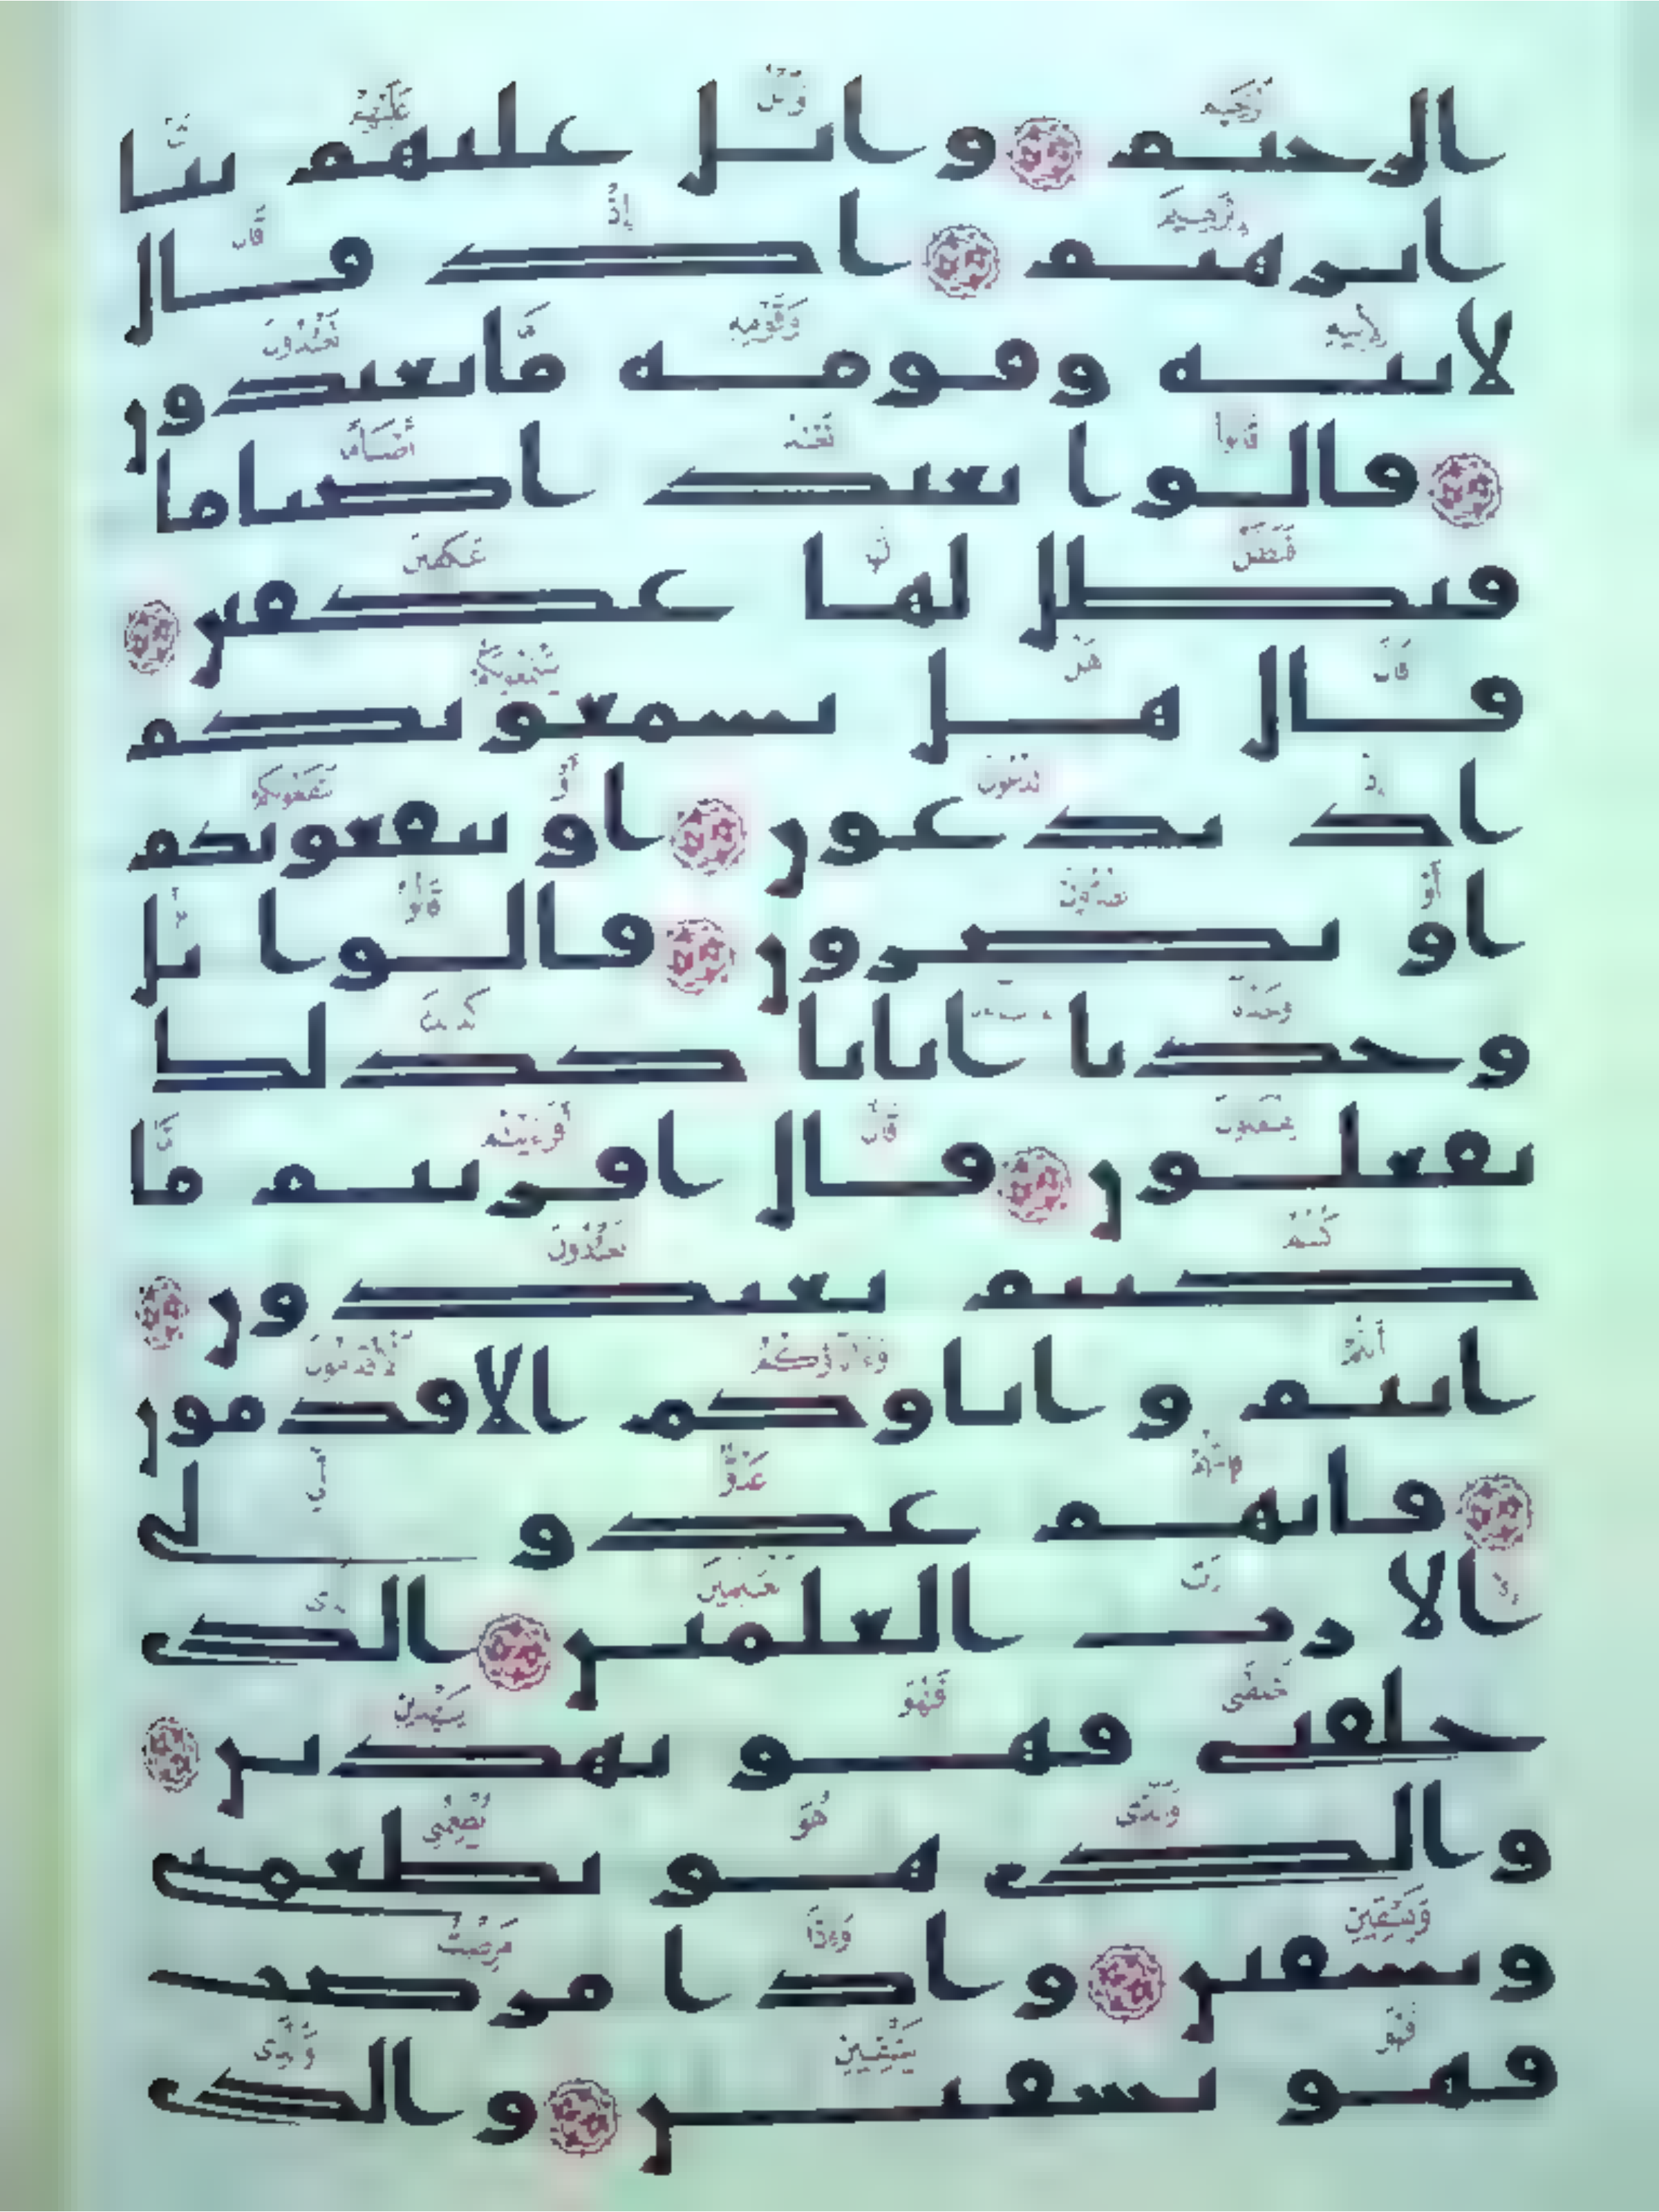 الرحيم واتل عليهم نبا
ابرهيم اذ قال
لابيه وقومه ما تعبدون
قالوا نعبد اصناما
فنظل لها عكفين
قال هل يسمعونكم
اذ تدعون او ينفعونكم
او يضرون قالوا بل
وجدنا ابانا كذلك
يفعلون قال افريتم ما
كنتم تعبدون
انتم واباوكم الاقدمون
فانهم عدو لي
الا رب العلمين الذي
خلقني فهو يهدين
والذي هو يطعمني
ويسقين واذا مرضت
فهو يشفين والذي